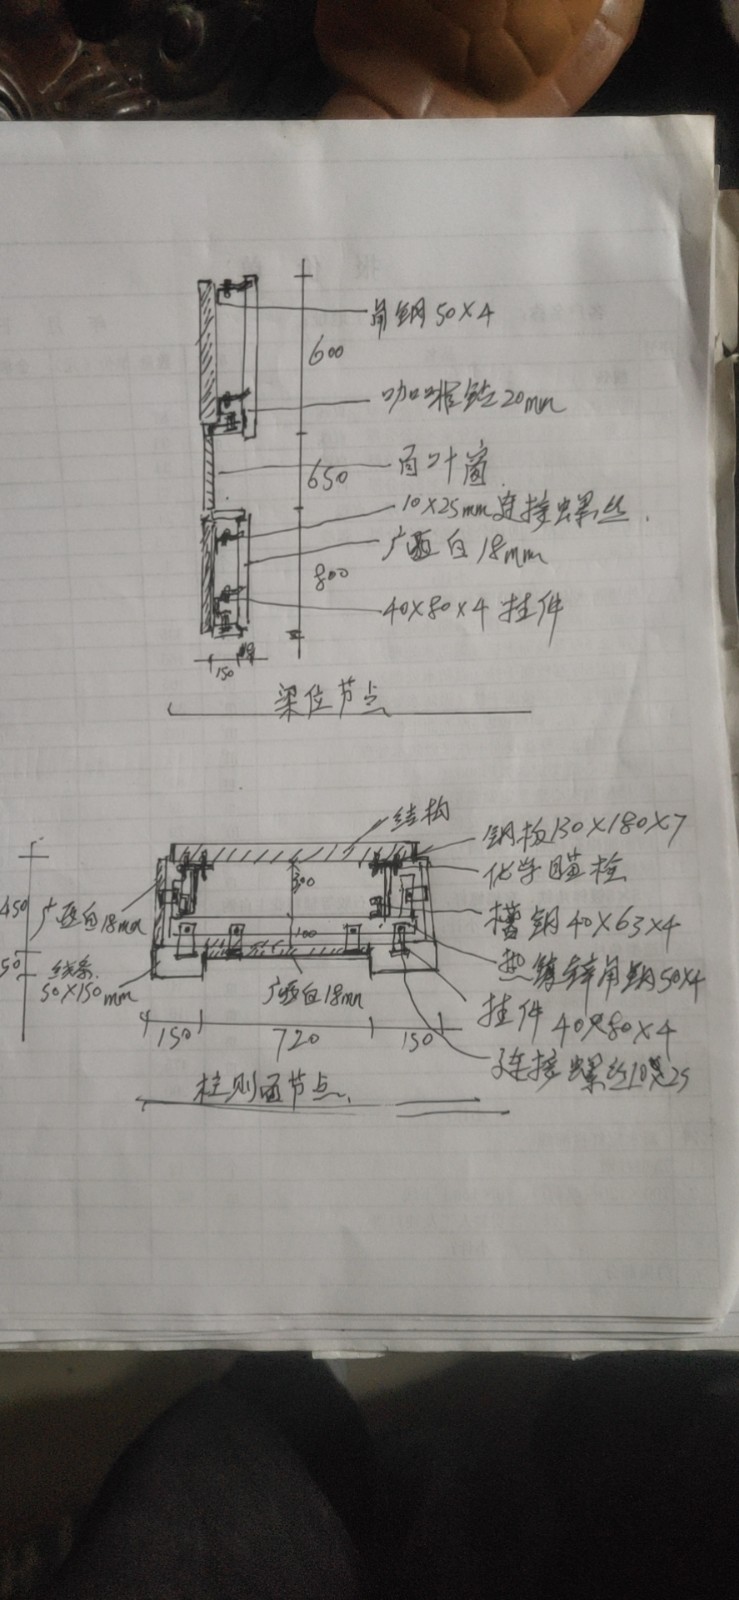 角钢50×4
600
咖啡钻20mm
650
百叶窗
10×25mm连接螺丝.
广西白18mm
800
40×80×4挂件
150
梁位节点
结构
钢板130×180×7
化学瞄栓
300
450
广西白18mm
槽钢40×63×4
100
热镀锌角钢50×4
50
线条
50×150mm
广西白18mm
挂件40×80×4
150
720
150
连接螺丝10×25
柱则面节点.